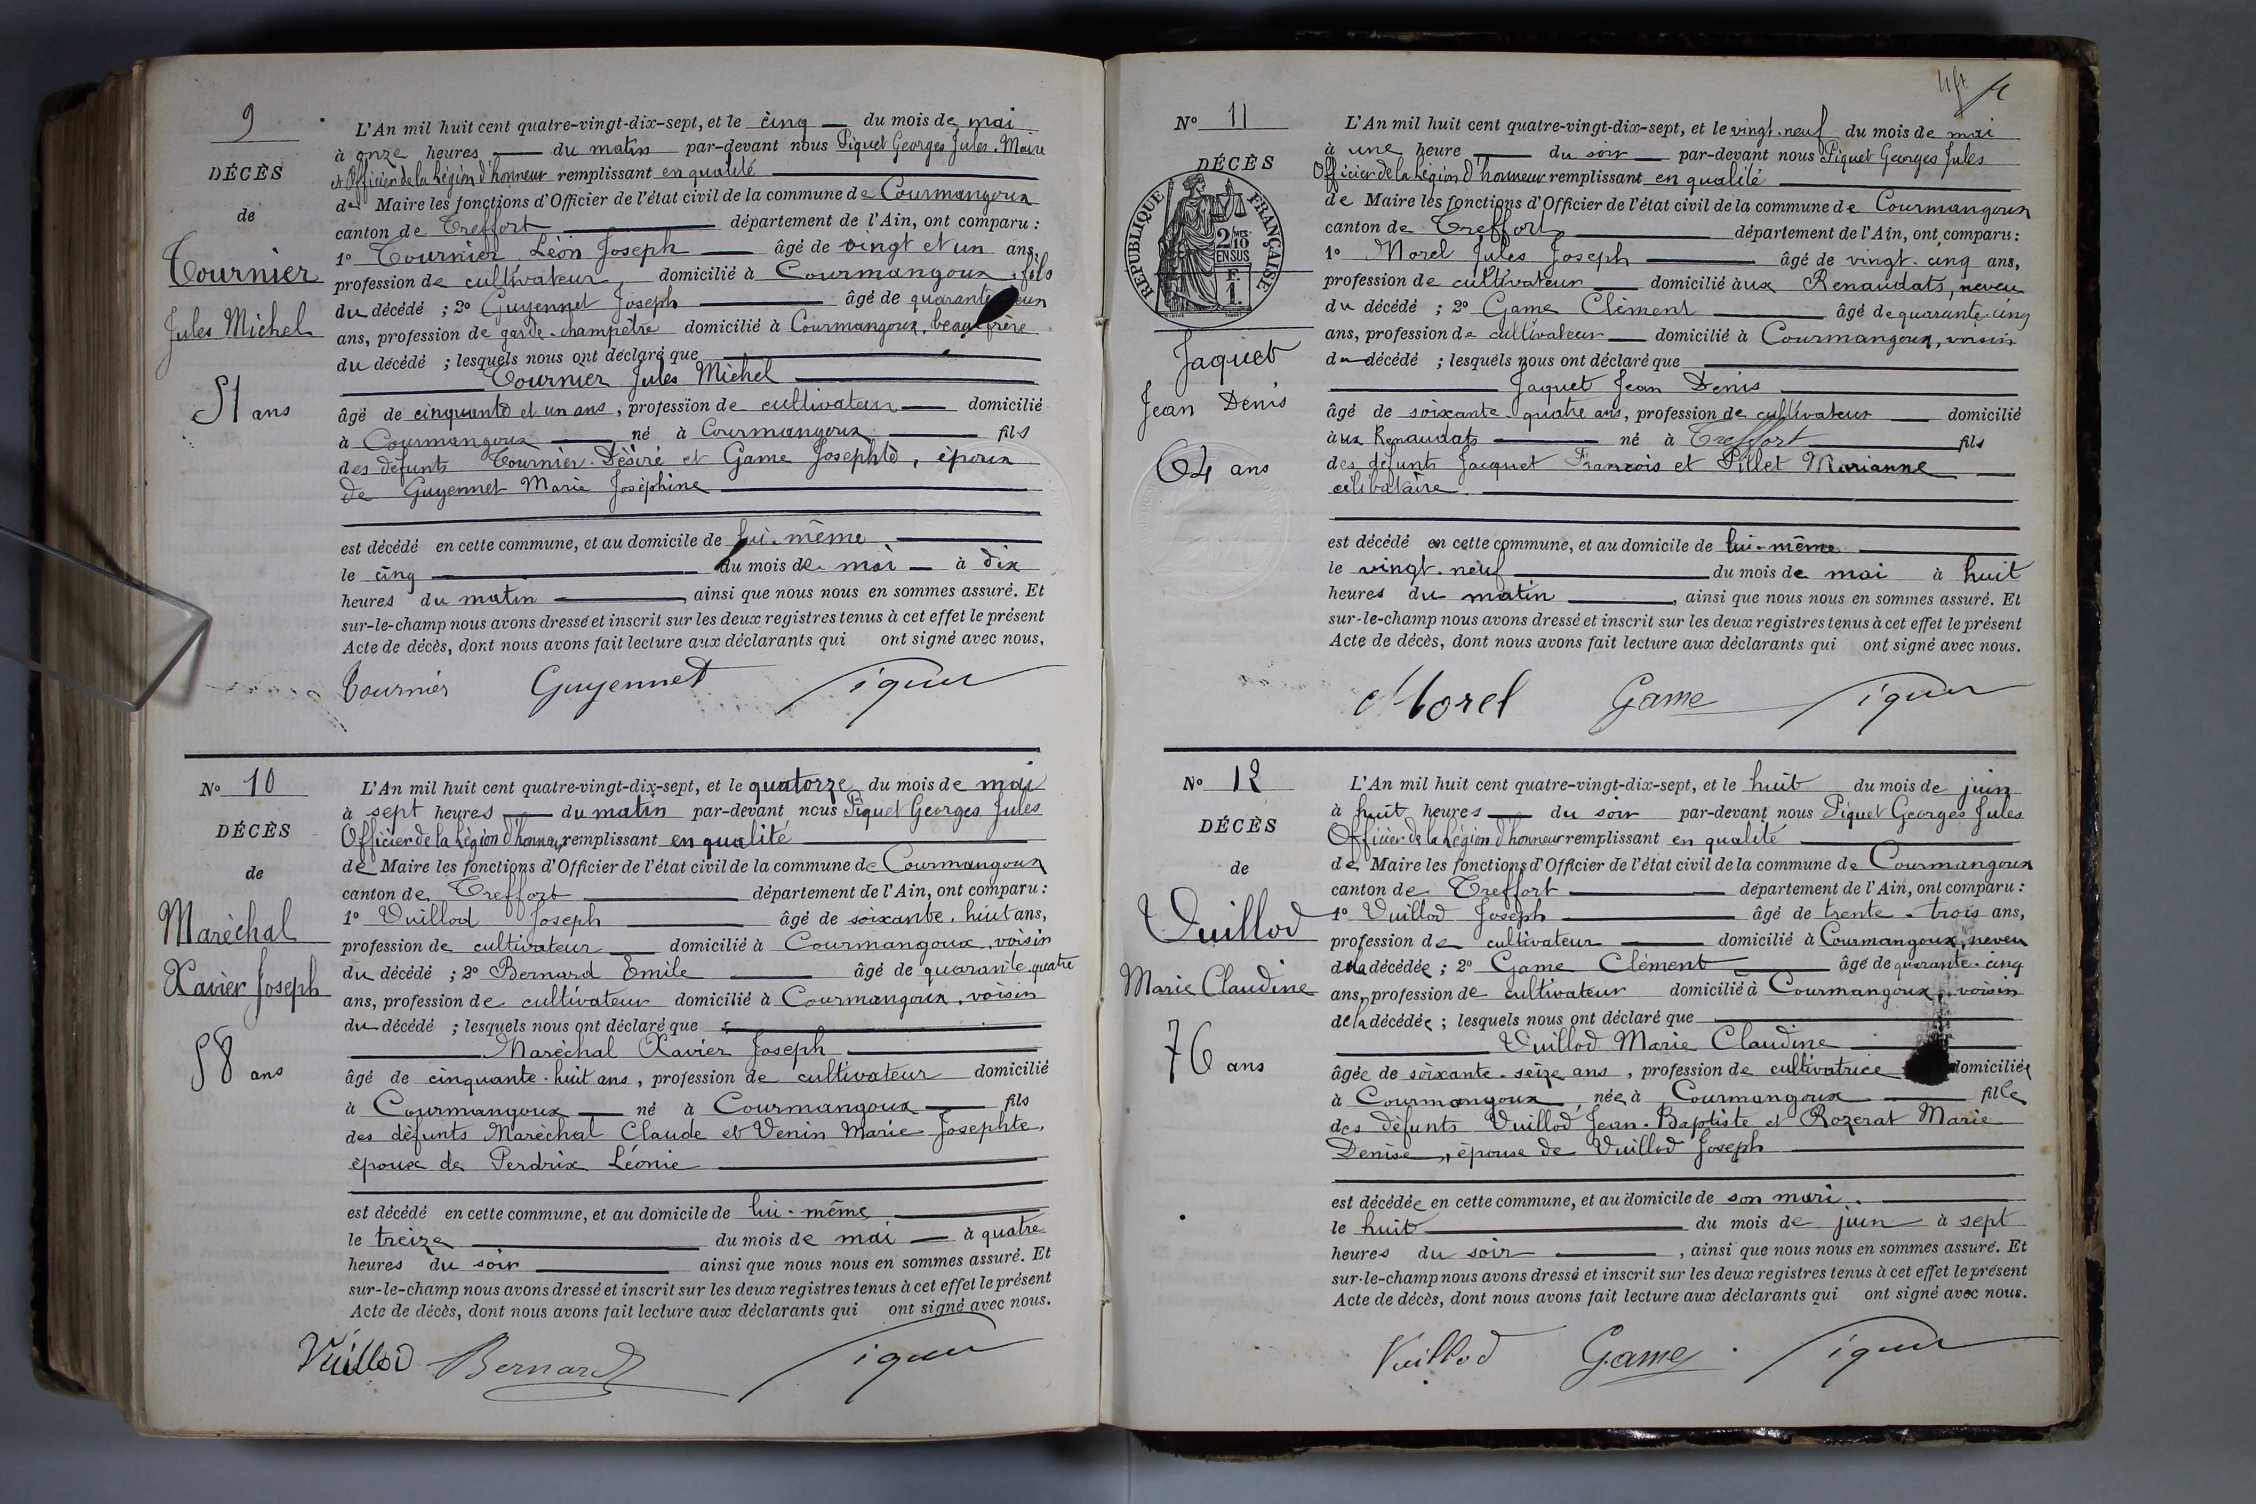 9
DÉCÈS
de
Tournier
Jules Michel
51 ans
L'An mil huit cent quatre-vingt-dix-sept, et le cinq du mois de mai
à onze heures du matin par-devant nous Piquet Georges Jules. Maire
et Officier de la Légion d'honneur remplissant en qualité
de Maire les fonctions d'Officier de l'état civil de la commune de Courmangoux
canton de Treffort département de l'Ain, ont comparu :
1° Tournier Léon Joseph âgé de vingt et un ans,
profession de cultivateur domicilié à Courmangoux, fils
du décédé ; 2° Guyennet Joseph âgé de quarante
ans, profession de garde-champêtre domicilié à Courmangoux, beau frère
du décédé ; lesquels nous ont déclaré que
Tournier Jules Michel
âgé de cinquante et un ans, profession de cultivateur domicilié
à Courmangoux né à Courmangoux fils
des défunts Tournier Désiré et Game Josephte, époux
de Guyennet Marie Joséphine
est décédé en cette commune, et au domicile de lui-même
le cinq du mois de mai à dix
heures du matin ainsi que nous nous en sommes assuré. Et
sur-le-champ nous avons dressé et inscrit sur les deux registres tenus à cet effet le présent
Acte de décès, dont nous avons fait lecture aux déclarants qui ont signé avec nous.
Tournier Guyennet Piquet
N° 10
DÉCÈS
de
Maréchal
Xavier Joseph
58 ans
L'An mil huit cent quatre-vingt-dix-sept, et le quatorze du mois de mai
à sept heures du matin par-devant nous Piquet Georges Jules
Officier de la Légion d'honneur remplissant en qualité
de Maire les fonctions d'Officier de l'état civil de la commune de Courmangoux
canton de Treffort département de l'Ain, ont comparu :
1° Vuillod Joseph âgé de soixante-huit ans,
profession de cultivateur domicilié à Courmangoux, voisin
du décédé ; 2° Bernard Emile âgé de quarante-quatre
ans, profession de cultivateur domicilié à Courmangoux, voisin
du décédé ; lesquels nous ont déclaré que
Maréchal Xavier Joseph
âgé de cinquante-huit ans, profession de cultivateur domicilié
à Courmangoux né à Courmangoux fils
des défunts Maréchal Claude et Venin Marie Josephte,
époux de Perdrix Léonie
est décédé en cette commune, et au domicile de lui-même
le treize du mois de mai à quatre
heures du soir ainsi que nous nous en sommes assuré. Et
sur-le-champ nous avons dressé et inscrit sur les deux registres tenus à cet effet le présent
Acte de décès, dont nous avons fait lecture aux déclarants qui ont signé avec nous.
Vuillod Bernard Piquet
N° 11
DÉCÈS
RÉPUBLIQUE FRANÇAISE
2/10 EN SUS
F. 1.
Jaquet
Jean Denis
64 ans
L'An mil huit cent quatre-vingt-dix-sept, et le vingt-neuf du mois de mai
à une heure du soir par-devant nous Piquet Georges Jules
Officier de la Légion d'honneur remplissant en qualité
de Maire les fonctions d'Officier de l'état civil de la commune de Courmangoux
canton de Treffort département de l'Ain, ont comparu :
1° Morel Jules Joseph âgé de vingt-cinq ans,
profession de cultivateur domicilié aux Renaudats, neveu
du décédé ; 2° Game Clément âgé de quarante-cinq
ans, profession de cultivateur domicilié à Courmangoux, voisin
du décédé ; lesquels nous ont déclaré que
Jaquet Jean Denis
âgé de soixante-quatre ans, profession de cultivateur domicilié
aux Renaudats né à Treffort fils
des défunts Jacquet François et Pillet Marianne
célibataire.
est décédé en cette commune, et au domicile de lui-même
le vingt-neuf du mois de mai à huit
heures du matin, ainsi que nous nous en sommes assuré. Et
sur-le-champ nous avons dressé et inscrit sur les deux registres tenus à cet effet le présent
Acte de décès, dont nous avons fait lecture aux déclarants qui ont signé avec nous.
Morel Game Piquet
N° 12
DÉCÈS
de
Vuillod
Marie Claudine
76 ans
L'An mil huit cent quatre-vingt-dix-sept, et le huit du mois de juin
à huit heures du soir par-devant nous Piquet Georges Jules
Officier de la Légion d'honneur remplissant en qualité
de Maire les fonctions d'Officier de l'état civil de la commune de Courmangoux
canton de Treffort département de l'Ain, ont comparu :
1° Vuillod Joseph âgé de trente-trois ans,
profession de cultivateur domicilié à Courmangoux, neveu
de la décédée ; 2° Game Clément âgé de quarante-cinq
ans, profession de cultivateur domicilié à Courmangoux, voisin
de la décédée ; lesquels nous ont déclaré que
Vuillod Marie Claudine
âgée de soixante-seize ans, profession de cultivatrice domiciliée
à Courmangoux, née à Courmangoux fille
des défunts Vuillod Jean-Baptiste et Rozerat Marie
Denise, épouse de Vuillod Joseph
est décédée en cette commune, et au domicile de son mari.
le huit du mois de juin à sept
heures du soir, ainsi que nous nous en sommes assuré. Et
sur-le-champ nous avons dressé et inscrit sur les deux registres tenus à cet effet le présent
Acte de décès, dont nous avons fait lecture aux déclarants qui ont signé avec nous.
Vuillod Game Piquet